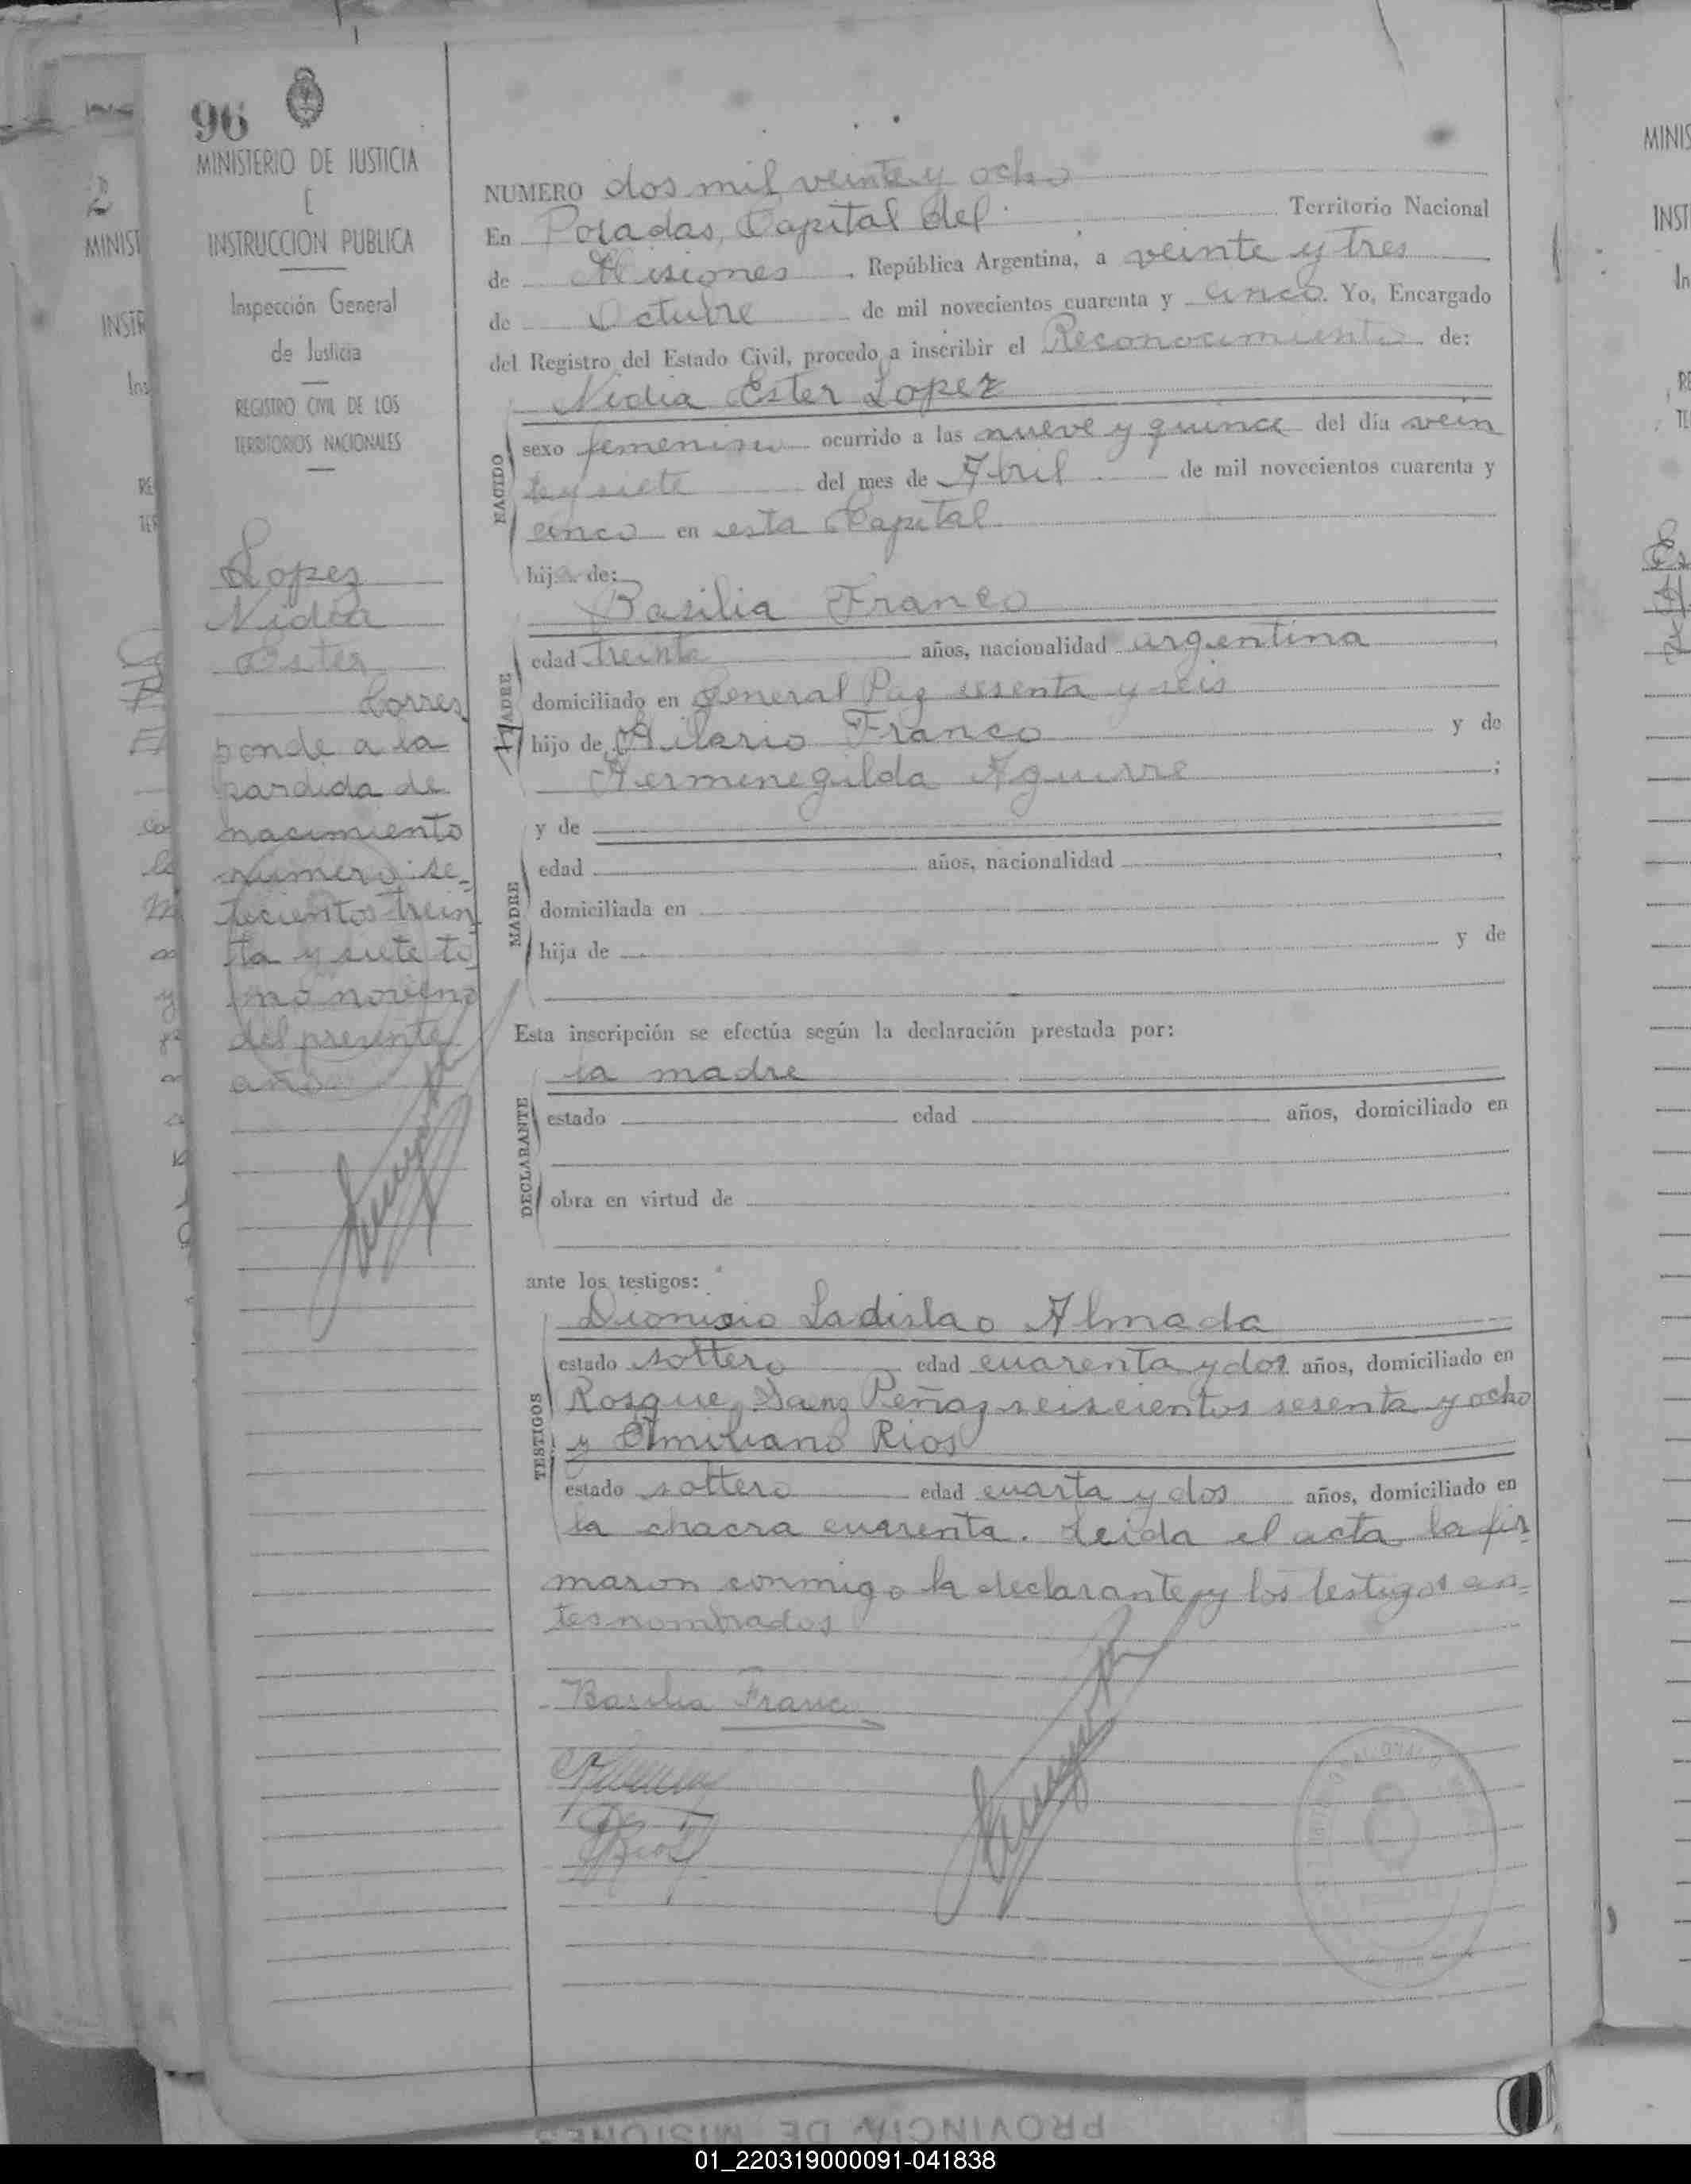 96
MINISTERIO DE JUSTICIA
E
INSTRUCCION PUBLICA
Inspección General
de Justicia
REGISTRO CIVIL DE LOS
TERRITORIOS NACIONALES
Lopez
Nidia
Ester
Corres
ponde a la
pardida de
nacimiento
número se-
tecientos trein
ta y siete to
mo noveno
del presente
año
NUMERO dos mil veinte y ocho
En Posadas, Capital del Territorio Nacional
de Misiones, República Argentina, a veinte y tres
de Octubre de mil novecientos cuarenta y cinco. Yo, Encargado
del Registro del Estado Civil, procedo a inscribir el Reconocimiento de:
Nidia Ester Lopez
NACIDO
sexo femenino ocurrido a las nueve y quince del día vein
te y siete del mes de Abril de mil novecientos cuarenta y
cinco en esta Capital
hija de:
Basilia Franco
MADRE
edad treinta años, nacionalidad argentina
domiciliado en General Paz sesenta y seis
hijo de Hilario Franco y de
Hermenegilda Aguirre ;
y de
MADRE
edad años, nacionalidad
domiciliada en
hija de y de
Esta inscripción se efectúa según la declaración prestada por:
la madre
DECLARANTE
estado edad años, domiciliado en
obra en virtud de
ante los testigos:
Dionisio Ladislao Almada
TESTIGOS
estado soltero edad cuarenta y dos años, domiciliado en
Rosque Saenz Peña seiscientos sesenta y ocho
y Emiliano Rios
estado soltero edad cuarta y dos años, domiciliado en
la chacra cuarenta. Leida el acta la fir
maron conmigo la declarante y los testigos an=
tes nombrados
Basilia Franco
Rios
MINIS
INST
PROVINCIA DE MISIONES
01_220319000091-041838